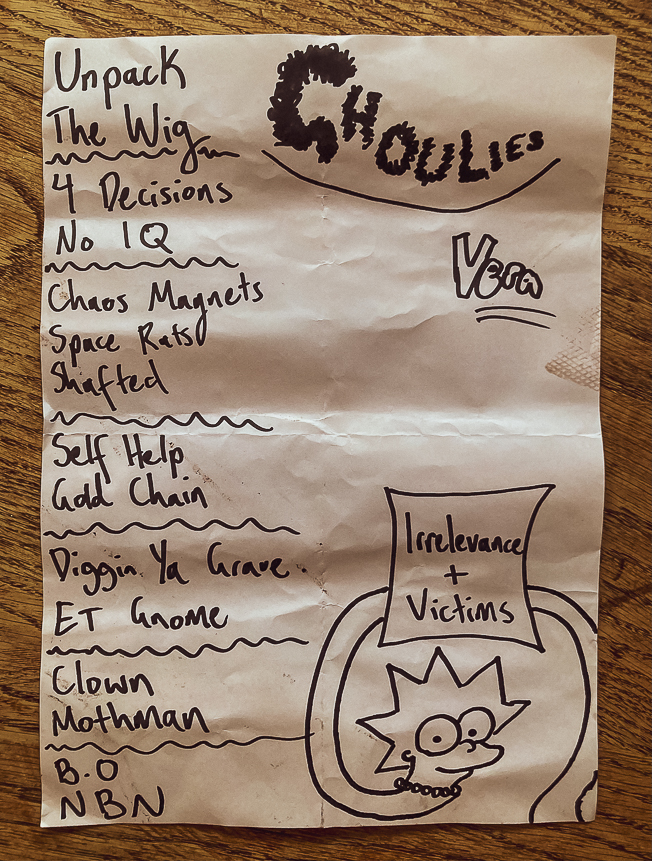 Unpack
The Wig
4 Decisions
No IQ
Chaos Magnets
Space Rats
Shafted
Self Help
Gold Chain
Diggin Ya Grave
ET Gnome
Clown
Mothman
B.O
NBN
GHOULIES
Vera
Irrelevance
+
Victims